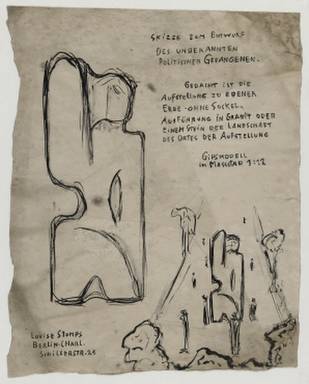 SKIZZE ZUM ENTWURF
DES UNBEKANNTEN
POLITISCHEN GEFANGENEN.
GEDACHT IST DIE
AUFSTELLUNG ZU EBENER
ERDE - OHNE SOCKEL.
AUSFÜHRUNG IN GRANIT ODER
EINEM STEIN DER LANDSCHAFT
DES ORTES DER AUFSTELLUNG
GIPSMODELL
IM MASSTAB 1:12
LOUISE STOMPS
BERLIN-CHARL.
SCHILLERSTR. 25